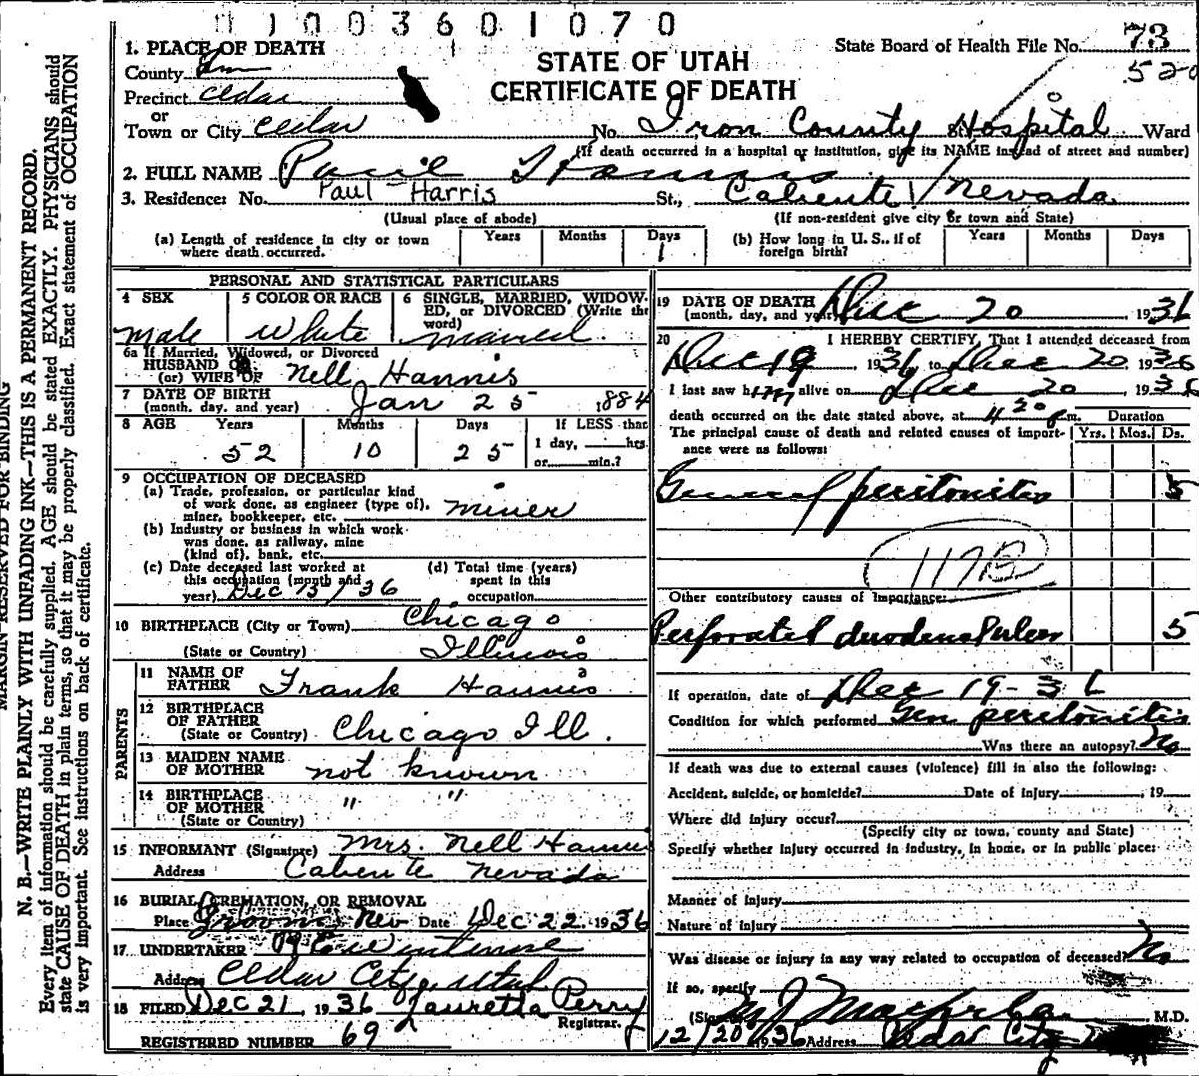 1100360 1070
1. PLACE OF DEATH
County
Precinct Cedar
or
Town or City Cedar
STATE OF UTAH
CERTIFICATE OF DEATH
State Board of Health File No. 73
520
No. Iron County Hospital St. Ward
(If death occurred in a hospital or institution, give its NAME instead of street and number)
2. FULL NAME Paul Harris
3. Residence: No. Paul Harris St., Caliente / Nevada
(Usual place of abode) (If non-resident give city or town and State)
(a) Length of residence in city or town where death occurred. Years Months Days 1
(b) How long in U. S., if of foreign birth? Years Months Days
PERSONAL AND STATISTICAL PARTICULARS
4 SEX Male
5 COLOR OR RACE White
6 SINGLE, MARRIED, WIDOWED, OR DIVORCED (Write the word) married
6a If Married, Widowed, or Divorced
HUSBAND OF
(or) WIFE OF Nell Harris
7 DATE OF BIRTH (month, day, and year) Jan 25 1884
8 AGE Years 52 Months 10 Days 25 If LESS than 1 day, hrs. or min.?
9 OCCUPATION OF DECEASED
(a) Trade, profession, or particular kind of work done, as engineer (type of), miner, bookkeeper, etc. miner
(b) Industry or business in which work was done, as railway, mine (kind of), bank, etc.
(c) Date deceased last worked at this occupation (month and year) Dec 13/36
(d) Total time (years) spent in this occupation.
10 BIRTHPLACE (City or Town) Chicago
(State or Country) Illinois
PARENTS
11 NAME OF FATHER Frank Harris
12 BIRTHPLACE OF FATHER (State or Country) Chicago Ill.
13 MAIDEN NAME OF MOTHER not known
14 BIRTHPLACE OF MOTHER (State or Country) " "
15 INFORMANT (Signature) Mrs. Nell Harris
Address Caliente Nevada
16 BURIAL, CREMATION, OR REMOVAL
Place Nev Date Dec 22 1936
17 UNDERTAKER
Address Cedar City, Utah
18 FILED Dec 21, 1936 Lauretta Perry
Registrar.
REGISTERED NUMBER 69
19 DATE OF DEATH (month, day, and year) Dec 20 1936
20 I HEREBY CERTIFY, That I attended deceased from
Dec 19 1936 to Dec 20, 1936
I last saw him alive on Dec 20 1936
death occurred on the date stated above, at 4 20 m. Duration
The principal cause of death and related causes of importance were as follows: Yrs. Mos. Ds.
General peritonitis 5
117B
Other contributory causes of importance:
Perforated duodenal ulcer 5
If operation, date of Dec 19-36
Condition for which performed Gen peritonitis
Was there an autopsy? No
If death was due to external causes (violence) fill in also the following:
Accident, suicide, or homicide? Date of injury , 19
Where did injury occur?
(Specify city or town, county and State)
Specify whether injury occurred in industry, in home, or in public place:
Manner of injury
Nature of injury
Was disease or injury in any way related to occupation of deceased? No
If so, specify
(Signed) M J Macfarlane, M.D.
12/20 1936 Address Cedar City
MARGIN RESERVED FOR BINDING
N. B.—WRITE PLAINLY WITH UNFADING INK—THIS IS A PERMANENT RECORD.
Every item of information should be carefully supplied. AGE should be stated EXACTLY. PHYSICIANS should
state CAUSE OF DEATH in plain terms, so that it may be properly classified. Exact statement of OCCUPATION
is very important. See instructions on back of certificate.